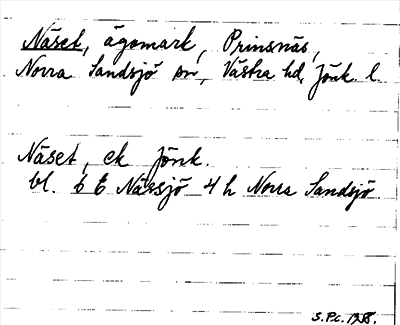 Näset, ägomark, Prinsnäs,
Norra Sandsjö sn, Västra hd, Jönk. l.
Näset, ek Jönk.
bl. 6 E Nässjö 4 h Norra Sandsjö
S.Pc. 1958.